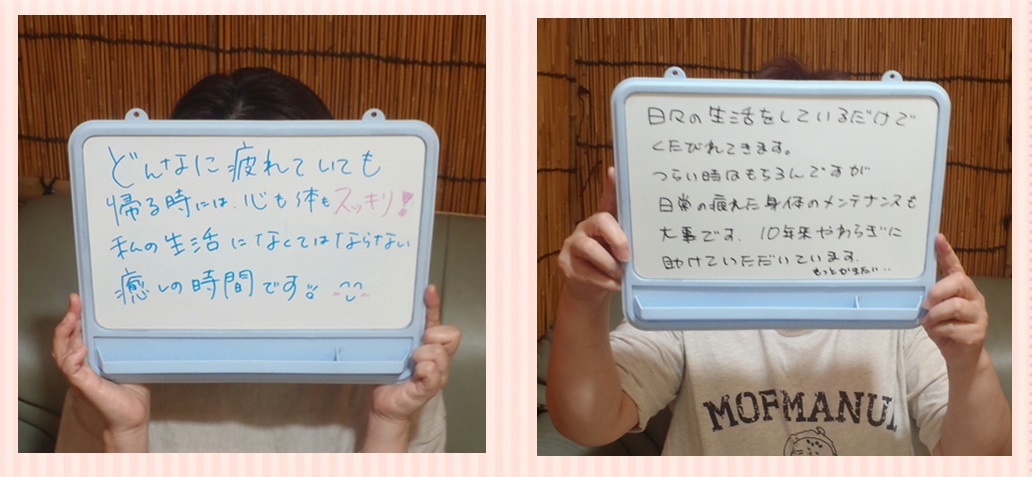 どんなに疲れていても
帰る時には、心も体もスッキリ!
私の生活になくてはならない
癒しの時間です
日々の生活をしているだけで
くたびれてきます。
つらい時はもちろんですが
日常の疲れた身体のメンテナンスも
大事です。10年来やわらぎに
助けていただいています。
MOFMANU